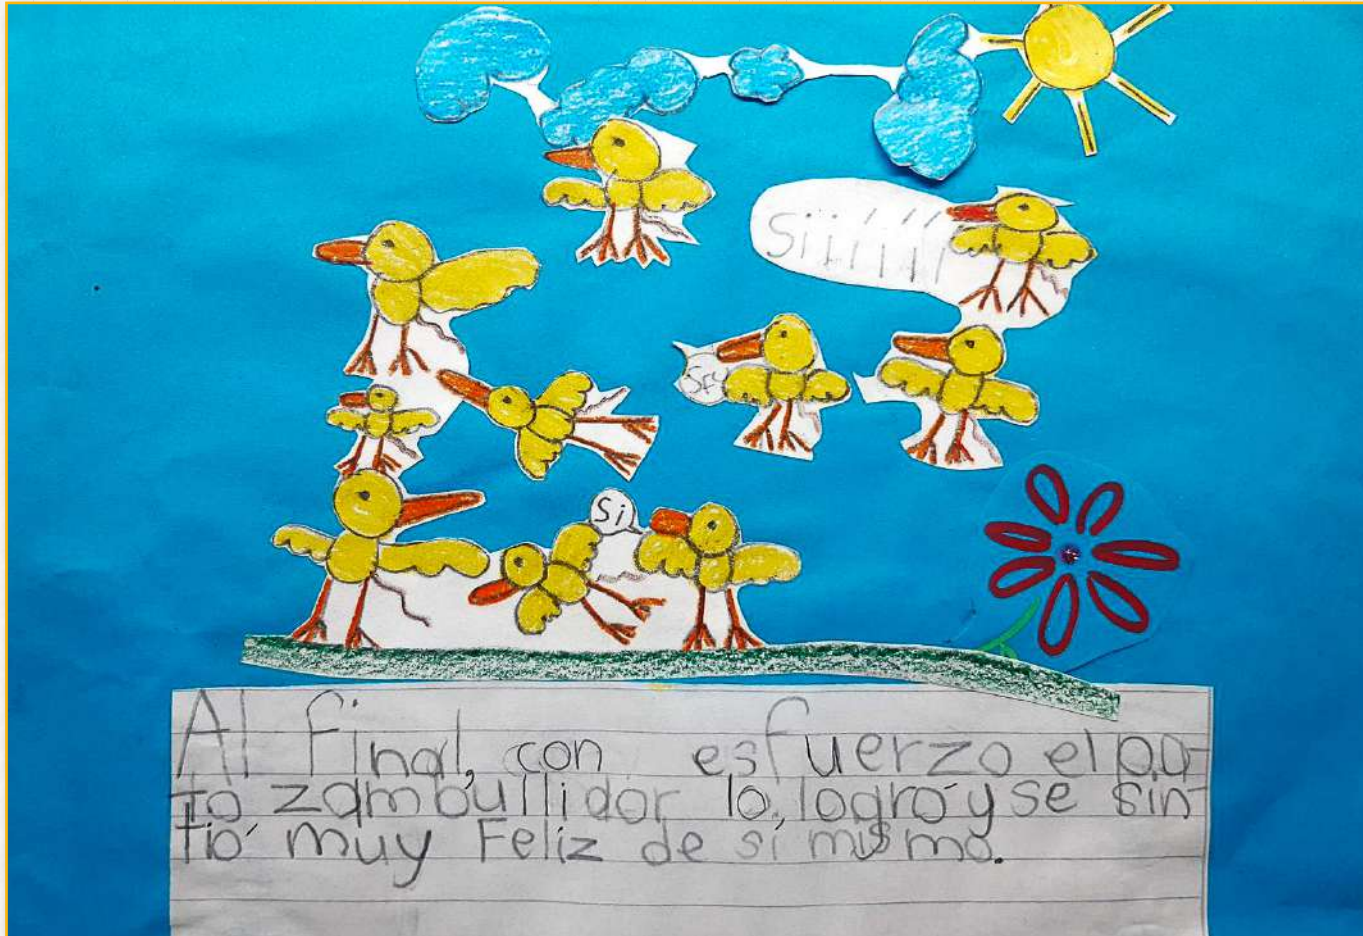 Siííííí
Si
Al final, con esfuerzo el pa-
to zambullidor lo logró y se sin-
tió muy Feliz de sí mismo.